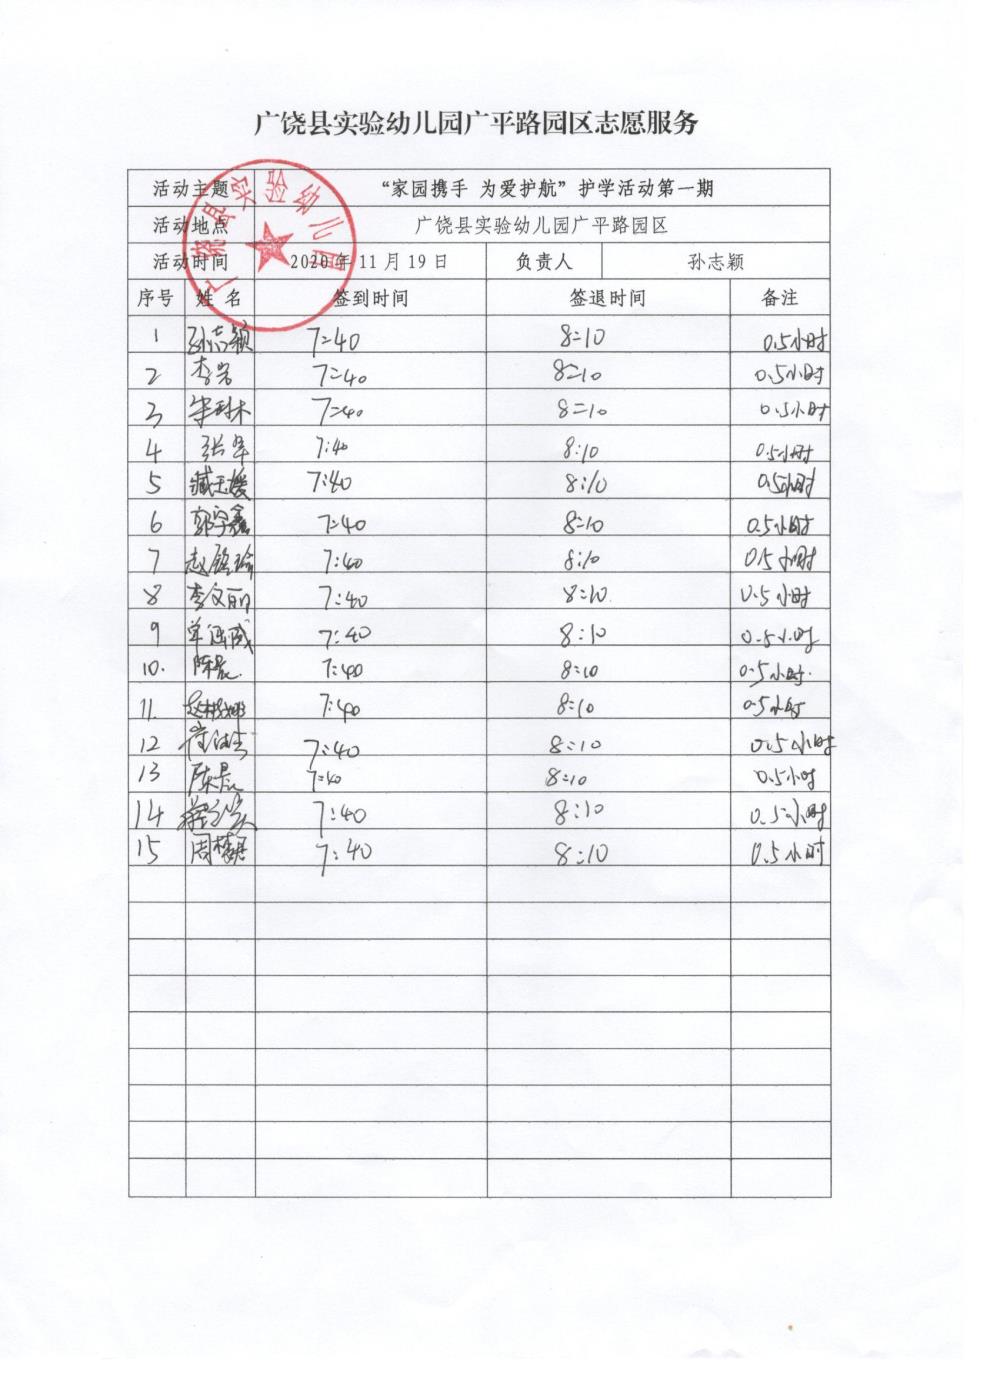 广饶县实验幼儿园广平路园区志愿服务
活动主题 “家园携手 为爱护航”护学活动第一期
活动地点 广饶县实验幼儿园广平路园区
活动时间 2020年11月19日 负责人 孙志颖
广饶县实验幼儿园
序号 姓 名 签到时间 签退时间 备注
1 孙志颖 7:40 8:10 0.5小时
2 李岩 7:40 8:10 0.5小时
3 7:40 8:10 0.5小时
4 张军 7:40 8:10 0.5小时
5 臧玉媛 7:40 8:10 0.5小时
6 郭宇鑫 7:40 8:10 0.5小时
7 赵 7:40 8:10 0.5小时
8 李文丽 7:40 8:10. 0.5小时
9 单 7:40 8:10 0.5小时
10. 陈晨. 7:40 8:10 0.5小时.
11. 赵 7:40 8:10 0.5小时
12 7:40 8:10 0.5小时
13 陈晨 7:40 8:10 0.5小时
14 7:40 8:10 0.5小时
15 周 7:40 8:10 0.5小时